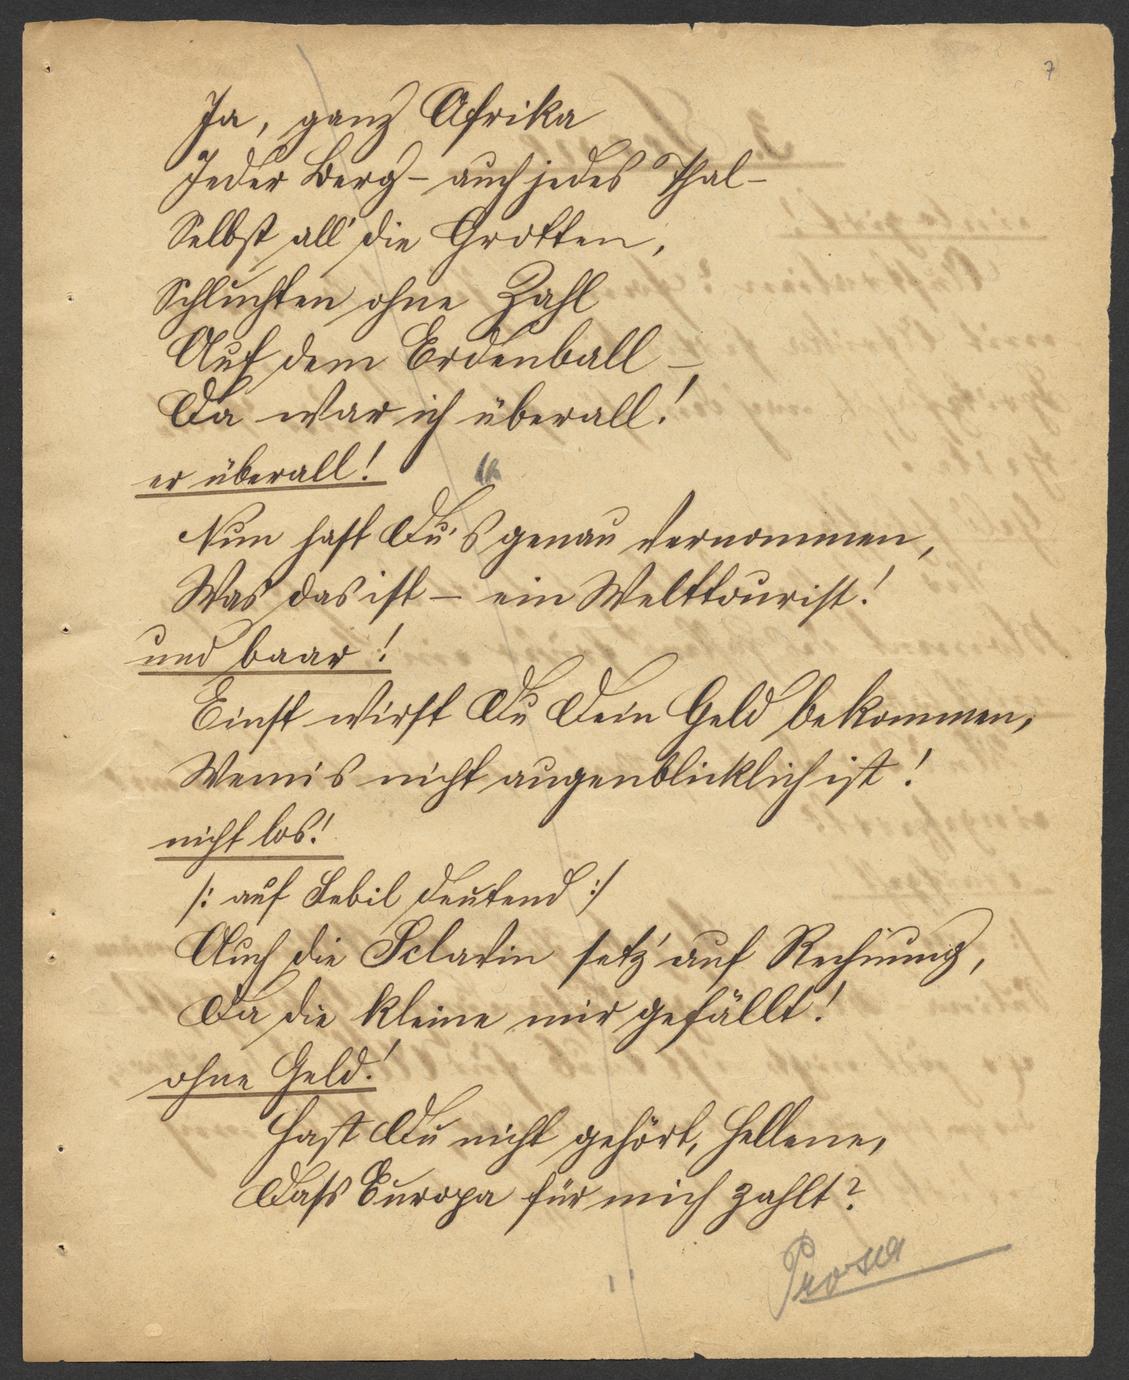 7
Ja, ganz Afrika
Jeder Berg – auch jedes Thal –
Selbst all' die Grotten,
Schluchten ohne Zahl
Auf dem Erdenball –
Da war ich überall!
er überall!
Nun hast Du's genau vernommen,
Was das ist – ein Welttourist!
und baar!
Einst wirst Du Dein Geld bekommen,
Wenn's nicht augenblicklich ist!
nicht los!
/: auf Sebil deutend :/
Auch die Sclavin setz' auf Rechnung,
Da die kleine mir gefällt!
ohne Geld!
Hast Du nicht gehört, Hellene,
Dass Europa für mich zahlt?
Prosa